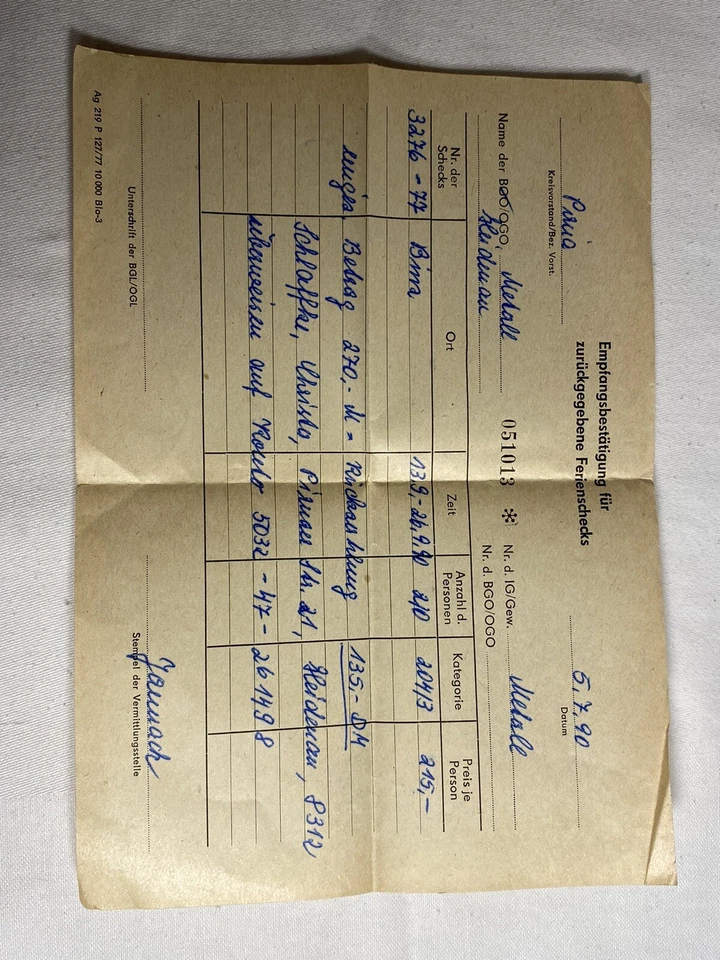 Empfangsbestätigung für
zurückgegebene Ferienschecks
Pirna
Kreisvorstand/Bez. Vorst.
5.7.90
Datum
Name der BGO/OGO, Metall
Heidenau
051013 * Nr. d. IG/Gew. Metall
Nr. d. BGO/OGO
Nr. der Schecks Ort Zeit Anzahl d. Personen Kategorie Preis je Person
3276-77 Binz 13.9.-26.9.90 2/0 204/3 215,-
Betrag 270,- M = Rückzahlung 135,- DM
Christa, Pirnaer Str. 21, Heidenau, 8312
überweisen auf Konto 5032-47-261498
Unterschrift der BGL/OGL
Stempel der Vermittlungsstelle
Ag 219 P 127/77 10 000 Blo-3